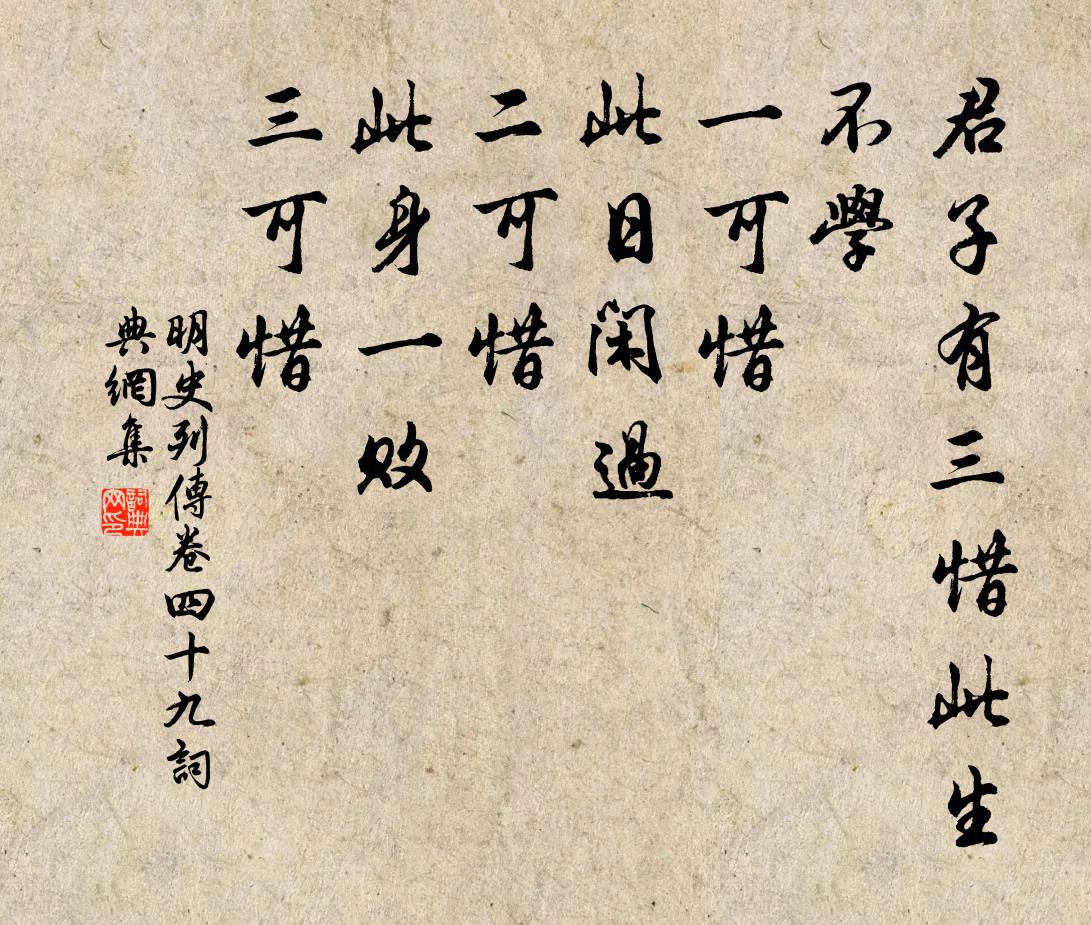 君子有三惜此生
不學
一可惜
此日閑過
二可惜
此身一敗
三可惜
明史列傳卷四十九詞
典網集
詞典
网印